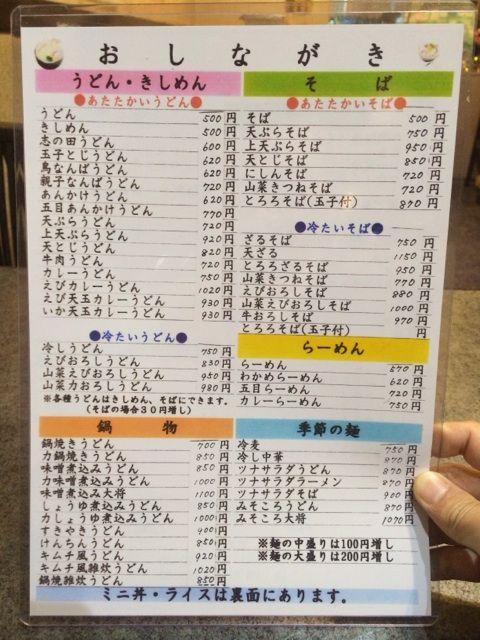 おしながき
うどん・きしめん
●あたたかいうどん●
うどん 500円
きしめん 500円
志の田うどん 600円
玉子とじうどん 620円
鳥なんばうどん 620円
親子なんばうどん 720円
あんかけうどん 620円
五目あんかけうどん 770円
天ぷらうどん 720円
上天ぷらうどん 920円
天とじうどん 820円
牛肉うどん 720円
カレーうどん 750円
えびカレーうどん 1020円
えび天玉カレーうどん 930円
いか天玉カレーうどん 930円
●冷たいうどん●
冷しうどん 750円
えびおろしうどん 830円
山菜えびおろしうどん 950円
山菜力おろしうどん 980円
※各種うどんはきしめん、そばにできます。
(そばの場合30円増し)
鍋物
鍋焼きうどん 700円
力鍋焼きうどん 850円
味噌煮込みうどん 850円
力味噌煮込みうどん 1000円
味噌煮込み大将 1100円
しょうゆ煮込みうどん 850円
力しょうゆ煮込みうどん 1000円
すきやきうどん 900円
けんちんうどん 850円
キムチ風うどん 920円
キムチ風雑炊うどん 1020円
鍋焼雑炊うどん 850円
そば
●あたたかいそば●
そば 500円
天ぷらそば 750円
上天ぷらそば 950円
天とじそば 850円
にしんそば 720円
山菜きつねそば 720円
とろろそば(玉子付) 870円
●冷たいそば●
ざるそば 750円
天ざる 1150円
とろろざるそば 950円
山菜きつねそば 770円
えびおろしそば 880円
山菜えびおろしそば 1000円
牛おろしそば 970円
とろろそば(玉子付) 円
らーめん
らーめん 870円
わかめらーめん 620円
五目らーめん 720円
カレーらーめん 750円
季節の麺
冷麦 750円
冷し中華 870円
ツナサラダうどん 870円
ツナサラダラーメン 870円
ツナサラダそば 900円
みそころうどん 870円
みそころ大将 1070円
※麺の中盛りは100円増し
※麺の大盛りは200円増し
ミニ丼・ライスは裏面にあります。